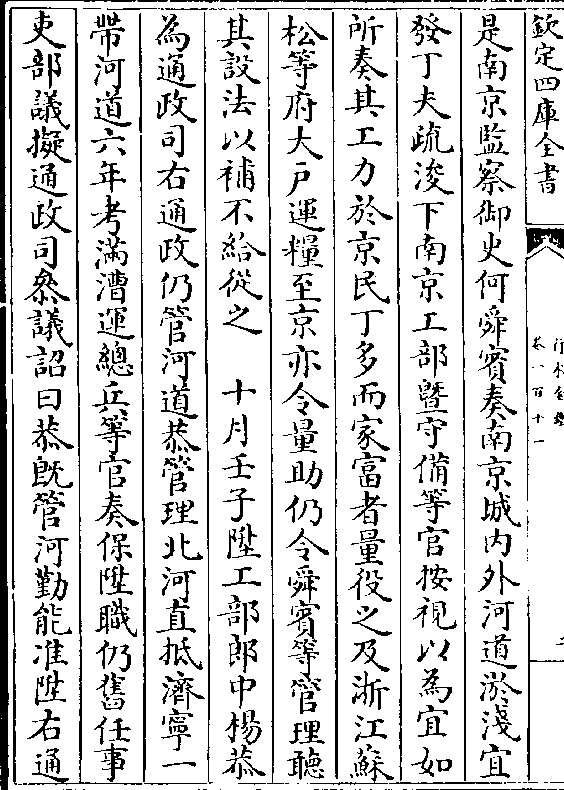 欽定四庫全書
行水金鑑
卷一百十一
是南京監察御史何舜賓奏南京城内外河道淤淺宜
發丁夫疏浚下南京工部曁守備等官按視以為宜如
所奏其工力於京民丁多而家富者量役之及浙江蘇
松等府大戸運糧至京亦令量助仍令舜賓等管理聽
其設法以補不給從之　十月壬子陞工部郎中楊恭
為通政司右通政仍管河道恭管理北河直抵濟寧一
帶河道六年考滿漕運總兵等官奏保陞職仍舊任事
吏部議擬通政司叅議詔曰恭旣管河勤能准陞右通